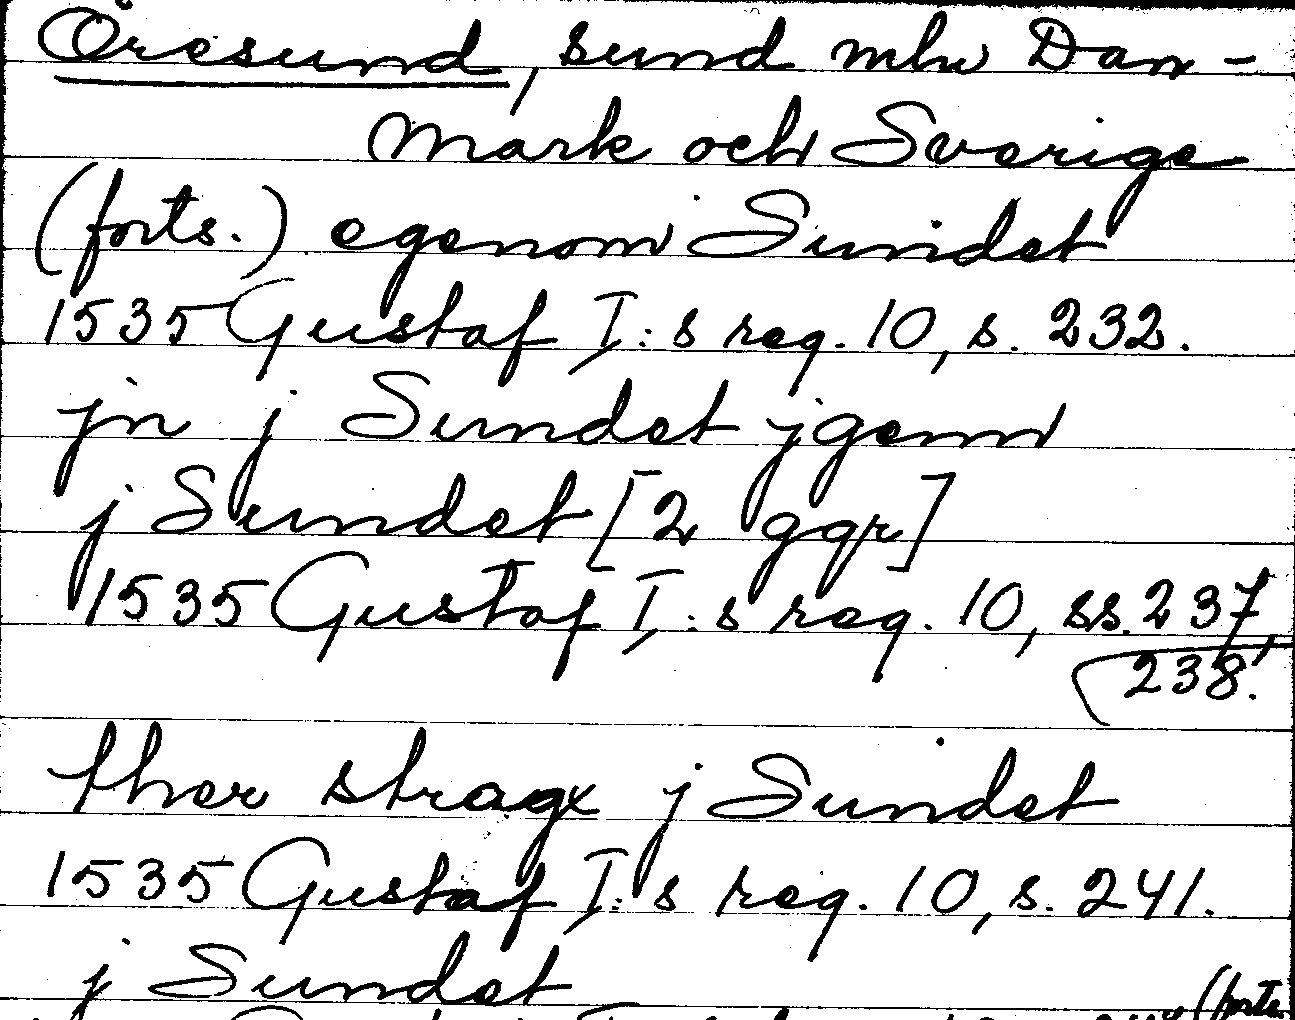 Öresund, sund mlw Dan-
mark och Sverige
(forts.) egenom Sundet
1535 Gustaf I:s reg. 10, s. 232.
jn j Sundet jgenn
j Sundet [2 ggr]
1535 Gustaf I:s reg. 10, ss. 237,
238.
ther stragx j Sundet
1535 Gustaf I:s reg. 10, s. 241.
j Sundet
(forts.